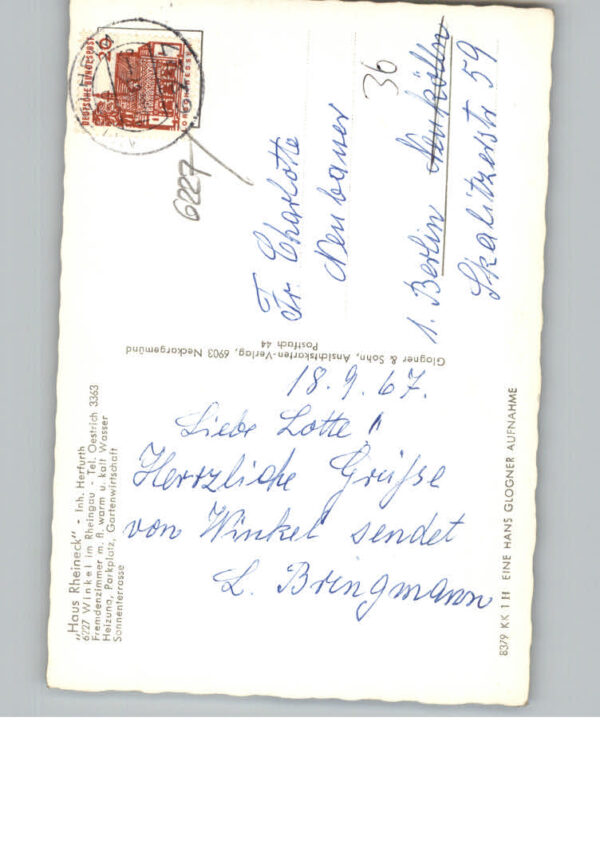 „Haus Rheineck" - Inh. Herfurth
6227 Winkel im Rheingau - Tel. Oestrich 3363
Fremdenzimmer m. fl. warm u. kalt Wasser
Heizung, Parkplatz, Gartenwirtschaft
Sonnenterrasse
18.9.67.
Liebe Lotte!
Herrzliche Grüße
von Winkel sendet
L. Bringmann
Glogner & Sohn, Ansichtskarten-Verlag, 6903 Neckargemünd
Postfach 44
DEUTSCHE BUNDESPOST
20
6227
Fr. Charlotte
Neubauer
36
1. Berlin Neukölln
Skalitzerstr 59
8379 KK 1 H EINE HANS GLOGNER AUFNAHME